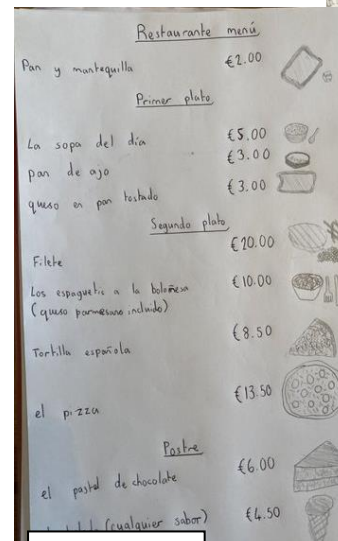 Restaurante menú
Pan y mantequilla €2.00
Primer plato
La sopa del día €5.00
pan de ajo €3.00
queso en pan tostado €3.00
Segundo plato
Filete €20.00
Los espaguetis a la boloñesa €10.00
(queso parmesano incluido)
Tortilla española €8.50
el pizza €13.50
Postre
el pastel de chocolate €6.00
(cualquier sabor) €4.50